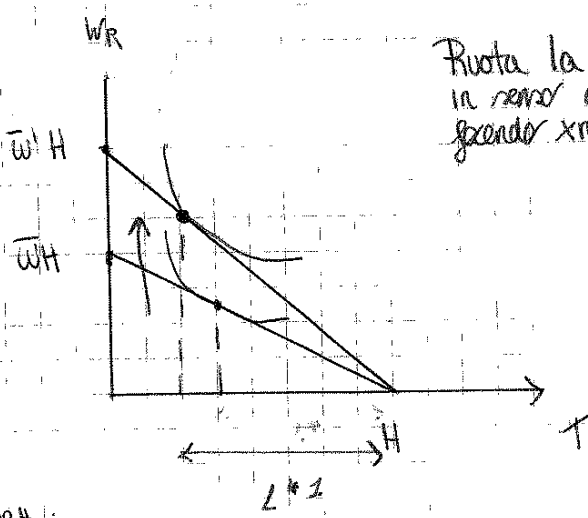 WR
Ruota la
in senso
facendo
w̄' H
w̄H
H
T
L*1